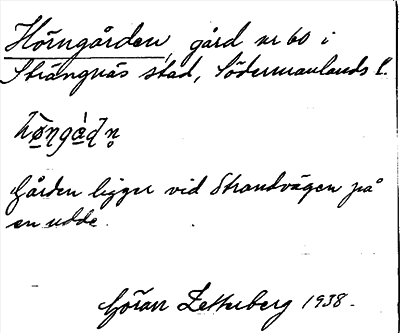 Hörngården, gård nr 60 i
Strängnäs stad, Södermanlands l.
Gården ligger vid Strandvägen på
en udde.
Göran Zetterberg 1938.